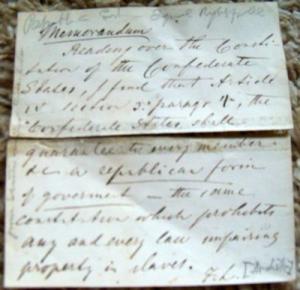 Memorandum
Reading over the Consti-
tution of the Confederate
States, I find that Article
section 3: parag 4, the
"Confederate States shall
guarantee to every member
a republican form
of goverment — the same
constitution which prohibits
any and every law impairing
property in slaves.
F. L.